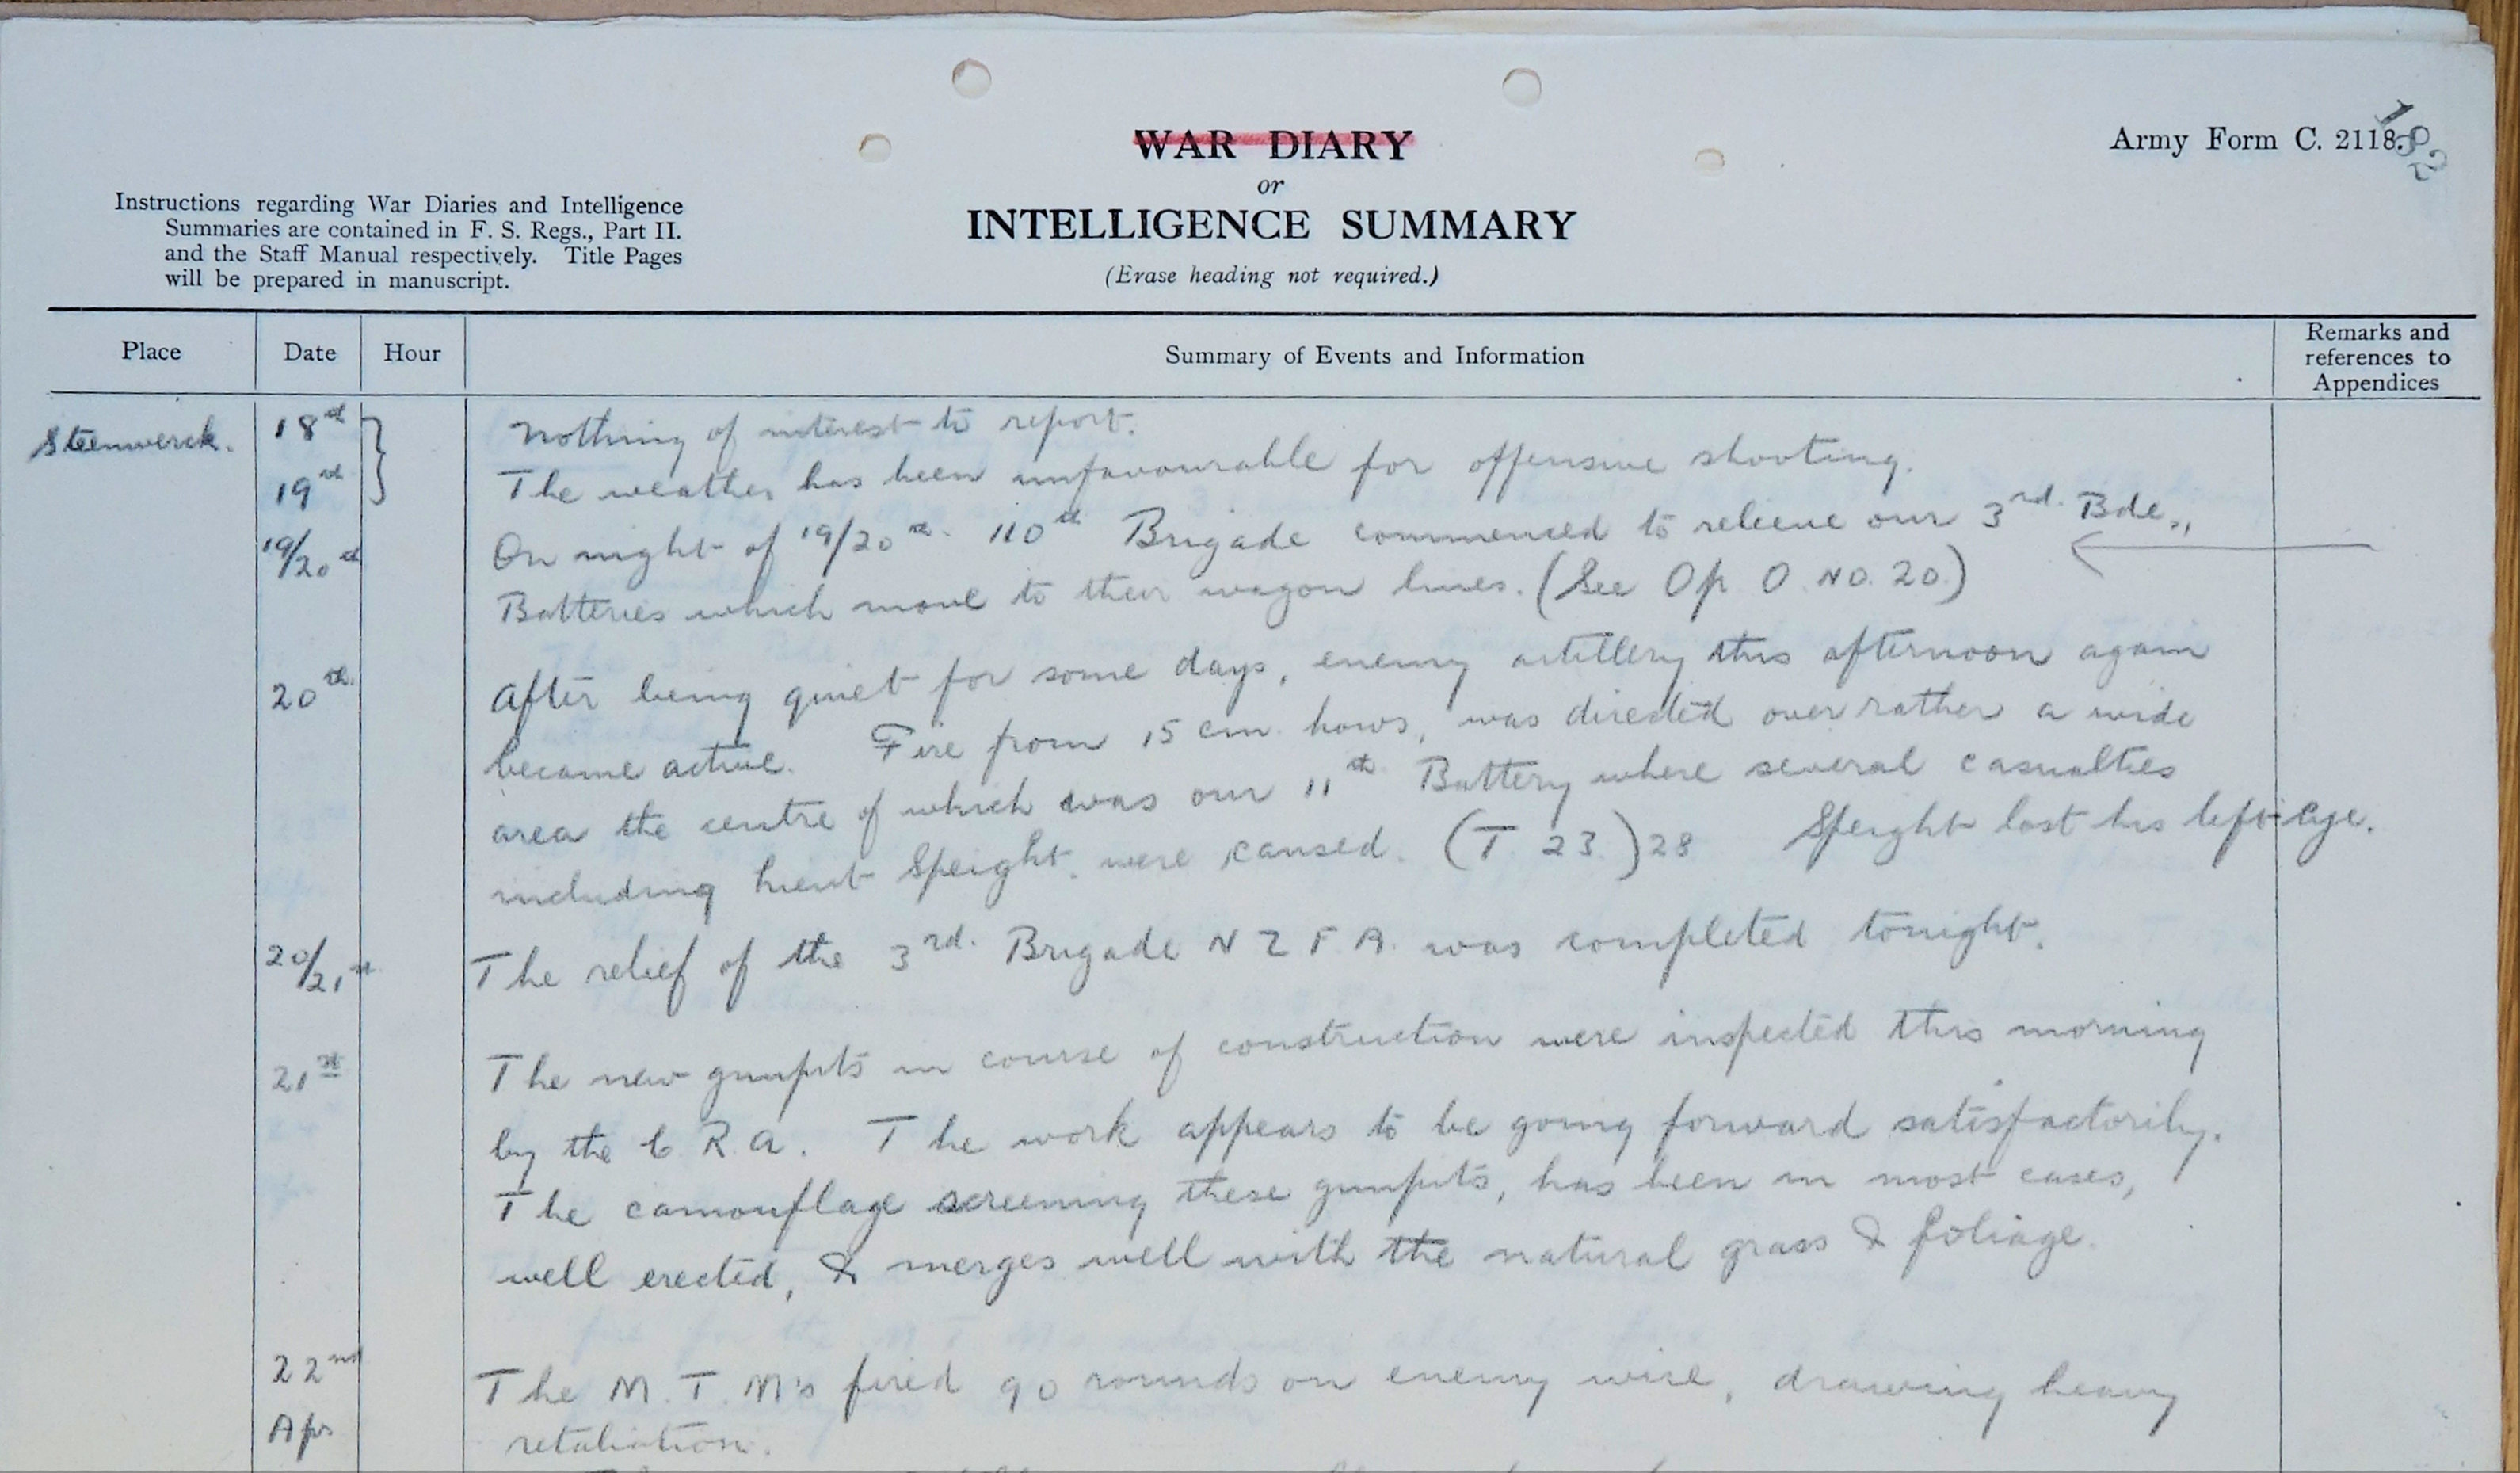 WAR DIARY
or
INTELLIGENCE SUMMARY
(Erase heading not required.)
Army Form C. 2118.
182
Instructions regarding War Diaries and Intelligence
Summaries are contained in F. S. Regs., Part II.
and the Staff Manual respectively. Title Pages
will be prepared in manuscript.
Place Date Hour Summary of Events and Information Remarks and
references to
Appendices
Steenwerck. 18th Nothing of interest to report.
19th The weather has been unfavourable for offensive shooting.
19/20th On night of 19/20th. 110th Brigade commenced to relieve our 3rd. Bde.,
Batteries which move to their wagon lines. (See Op O. NO. 20.)
20th. After being quiet for some days, enemy artillery this afternoon again
became active. Fire from 15 cm. hows, was directed over rather a wide
area the centre of which was our 11th Battery where several casualties
including Lieut Speight. were caused. (T. 23.) 28 Speight lost his left eye.
20/21st The relief of the 3rd. Brigade N Z F A. was completed tonight.
21st The new gunpits in course of construction were inspected this morning
by the C. R. A. The work appears to be going forward satisfactorily.
The camouflage screening these gunpits, has been in most cases,
well erected, & merges well with the natural grass & foliage.
22nd The M. T. M's fired 90 rounds on enemy wire, drawing heavy
Apr retaliation.